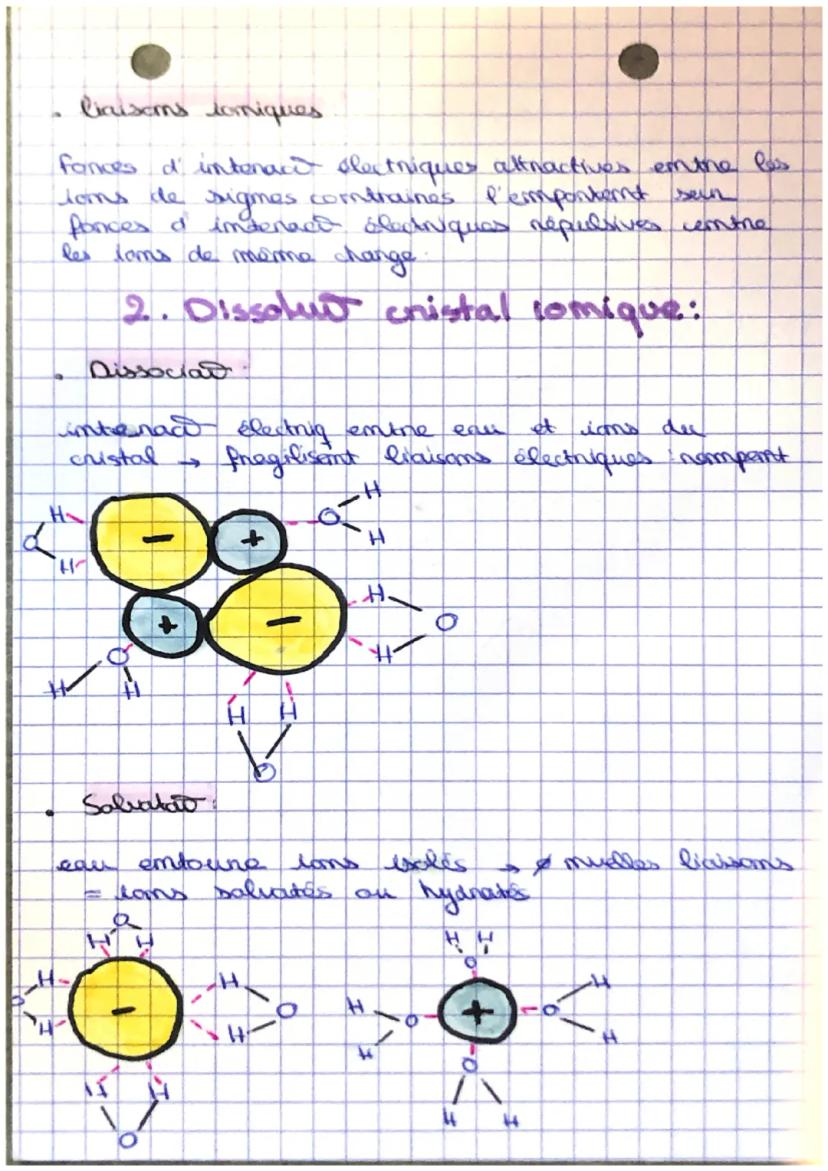 . liaisons ioniques
forces d'interact° électriques attractives entre les
ions de signes contraires l'emportent sur
forces d'interact° électriques répulsives entre
les ions de même charge.
2. Dissolut° cristal ionique:
. Dissociat°:
interact° électriq entre eau et ions du
cristal → fragilisent liaisons électriques : rompent
H
H
- +
O
H
O
H
H
+ -
H
O
O
H
H
H
H H
O
. Solvatat°:
eau entoure ions isolés → ∅ nvelles liaisons
= ions solvatés ou hydratés
O
H H
H H
O
H
H
-
O
H
O
H
H
H
O
+
O
H
H
H
O
H H
O
H H